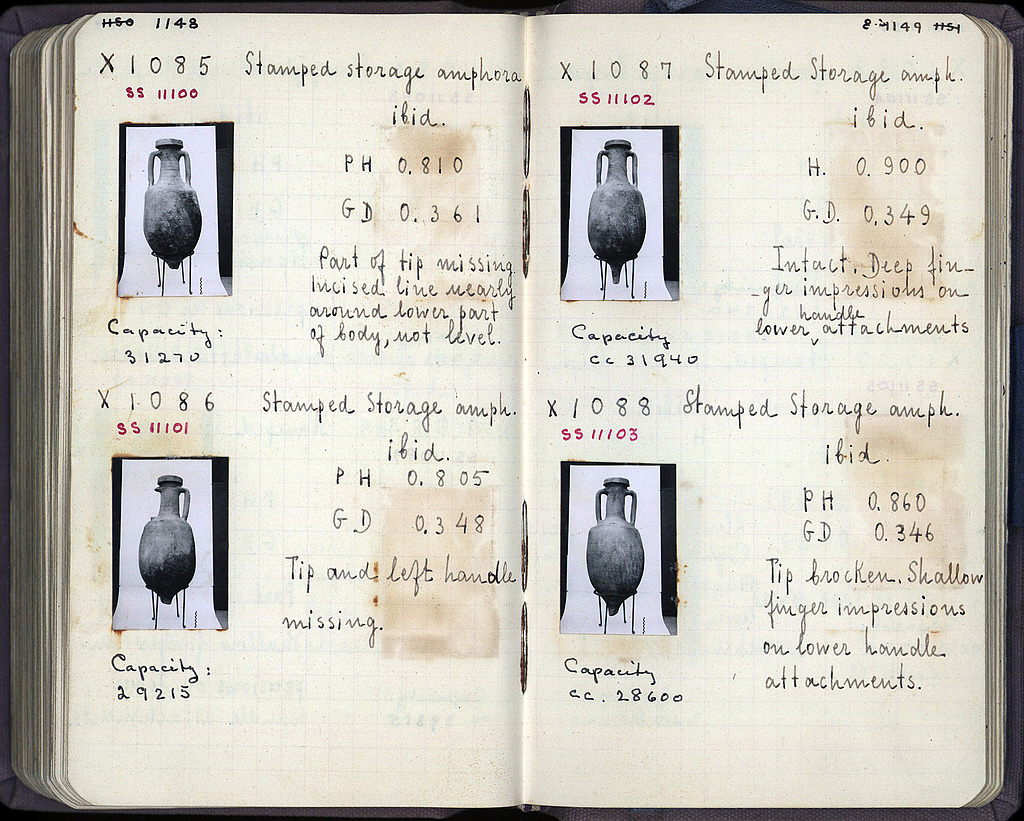 1150 1148
X 1085 Stamped storage amphora
SS 11100
ibid.
PH 0.810
GD 0.361
Part of tip missing.
Incised line nearly
around lower part
of body, not level.
Capacity:
31270
X 1086 Stamped Storage amph.
SS 11101
ibid.
PH 0.805
GD 0.348
Tip and left handle
missing.
Capacity:
29215
1149 1151
X 1087 Stamped Storage amph.
SS 11102
ibid.
H. 0.900
G.D. 0.349
Intact. Deep fin-
-ger impressions on
handle
lower attachments
Capacity
cc 31940
X 1088 Stamped Storage amph.
SS 11103
ibid.
PH 0.860
GD 0.346
Tip brocken. Shallow
finger impressions
on lower handle
attachments.
Capacity
cc. 28600